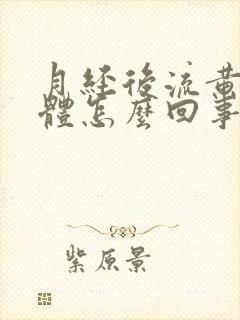 月經後流黃
體怎麼回事
紫原景